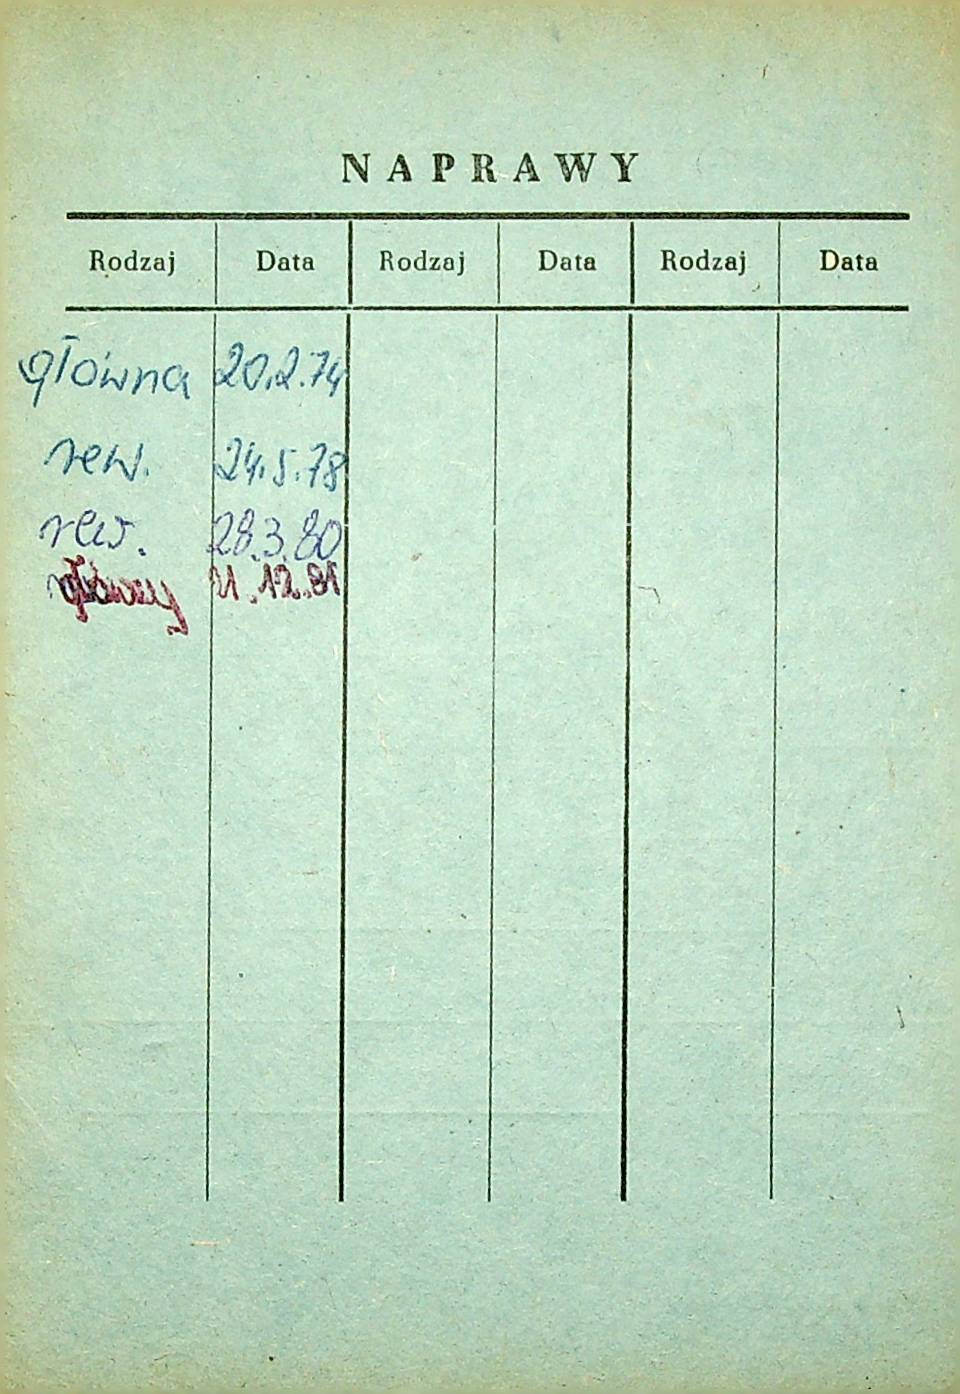 NAPRAWY
Rodzaj Data Rodzaj Data Rodzaj Data
główna 20.2.74
rew. 24.5.78
rew. 28.3.80
główny 11.12.81